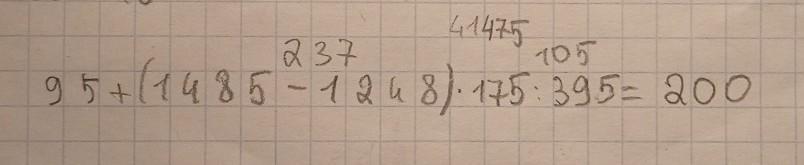 41475
237 105
95+(1485-1248)·175:395=200